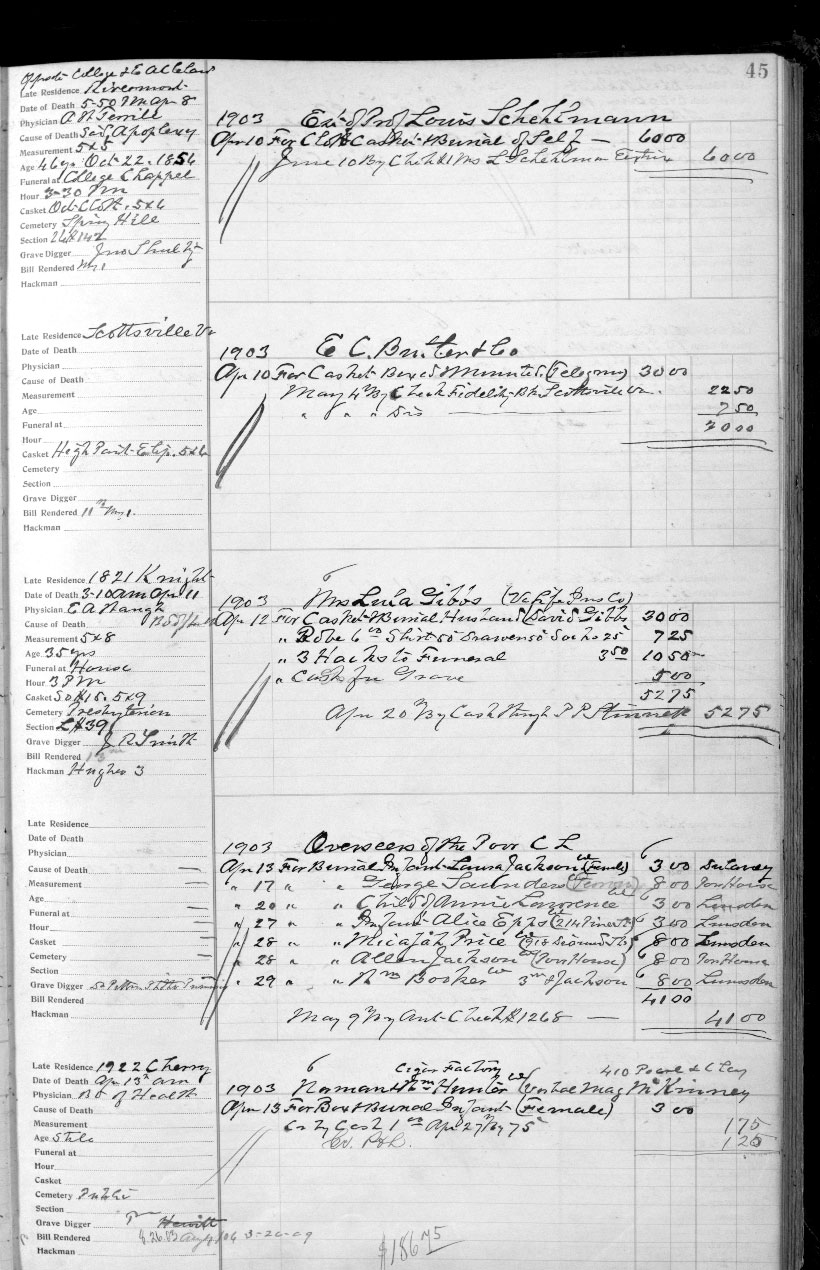 45
Opposite College & E
Late Residence Rivermont
Date of Death 5-50 Pm Apr 8
Physician A W Terrill
Cause of Death Apoplexy
Measurement 5x5
Age 46 yrs Oct-22-1856
Funeral at College Chappel
Hour 3-30 Pm
Casket Oct-Cloth. 5x6
Cemetery Spring Hill
Section
Grave Digger Jno
Bill Rendered My 1
Hackman
1903 Est of Prof Louis Schehlmann
Apr 10 For Cloth Casket & Burial of Self — 60 00
June 10 By Check Mrs L Schehlman 60 00
Late Residence Scottsville Va
Date of Death
Physician
Cause of Death
Measurement
Age
Funeral at
Hour
Casket High Part-Elip. 5x6
Cemetery
Section
Grave Digger
Bill Rendered 11th My 1.
Hackman
1903 E C. & Co
Apr 10 For Casket Boxed (Telegram) 30 00
May 4th By Check Fidelity Bk Scottsville Va. 22 50
" " " Dis 7 50
30 00
Late Residence 1821 Knight
Date of Death 3-10 am Apr 11
Physician E A Waugh
Cause of Death
Measurement 5x8
Age 35 yrs
Funeral at House
Hour 3 Pm
Casket So #15. 5x9
Cemetery Presbyterian
Section L #39
Grave Digger J R Smith
Bill Rendered
Hackman Hughes 3
6
1903 Mrs Lula Gibbs (Va Life Ins Co)
Apr 12 For Casket & Burial Husband (David Gibbs 30 00
" Robe 6 00 Shirt 50 Drawers 50 Socks 25 7 25
" 3 Hacks to Funeral 3 50 10 50
" Cash for Grave 5 00
52 75
Apr 20th By Cash through P P Stinnett 52 75
Late Residence
Date of Death
Physician
Cause of Death —
Measurement —
Age —
Funeral at —
Hour —
Casket —
Cemetery —
Section
Grave Digger
Bill Rendered
Hackman
1903 Overseers of the Poor C L
Apr 13 For Burial Infant Laura Jackson Col (Female) 3 00
" 17 " " George Saunders 8 00 Poor House
" 20 " " Child of Annie Lawrence Col 3 00 Lumsden
" 27 " " Infant Alice Epps Col (214 Pine St) 3 00 Lumsden
" 28 " " Micajah Price Col (918 Second St) 8 00 Lumsden
" 28 " " Allen Jackson Col (Poor House) 8 00 Poor House
" 29 " " Wm Booker Col 3rd & Jackson 8 00 Lumsden
41 00
May 9th By Aut-Check #1268 — 41 00
Late Residence 1922 Cherry
Date of Death Apr 13th am
Physician Bd of Health
Cause of Death
Measurement
Age Still
Funeral at
Hour
Casket
Cemetery Public
Section
Grave Digger
Bill Rendered 3-20-09
Hackman
6 Cigar Factory 410 Pearl & Clay
1903 Norman & Wm Hunter Col (Verbal Mag McKinney
Apr 13 For Box & Burial Infant (Female) 3 00
Cr By Cash 1 00 Apr 27th By 75 1 75
Ev. P&L. 1 25
$186 75